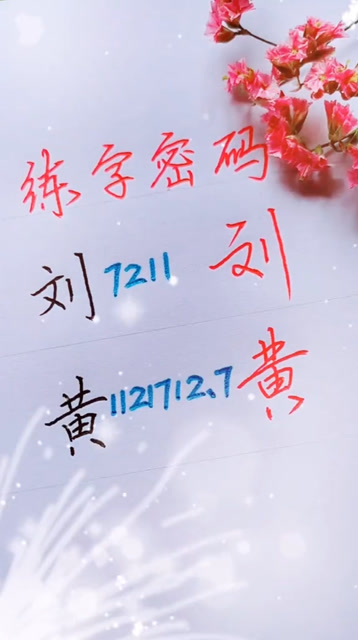 练字密码
刘 7211 刘
黄 1121712、7 黄